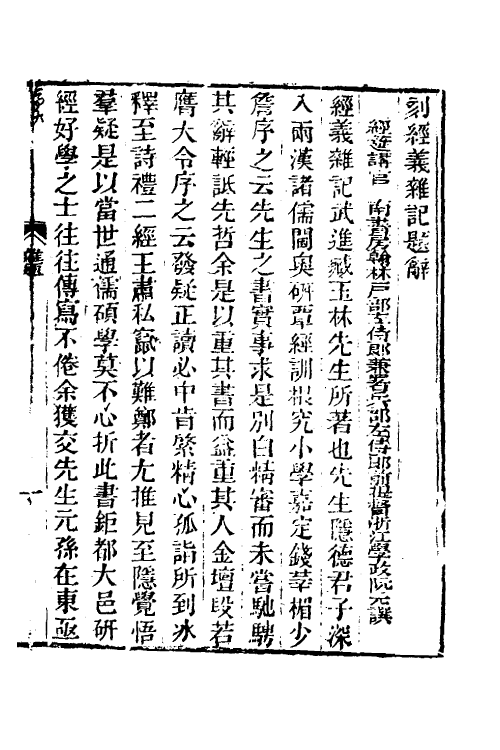 刻經義雜記題辭
經筵講官 南書房翰林戶部左侍郎兼署兵部左侍郎前提督浙江學政阮元譔
經義雜記武進臧玉林先生所著也先生隱德君子深
入兩漢諸儒閫奧研覃經訓根究小學嘉定錢莘楣少
詹序之云先生之書實事求是別白精審而未嘗馳騁
其辭輕詆先哲余是以重其書而益重其人金壇段若
膺大令序之云發疑正讀必中肯綮精心孤詣所到冰
釋至詩禮二經王肅私竄以難鄭者尤推見至隱覺悟
羣疑是以當世通儒碩學莫不心折此書鉅都大邑研
經好學之士往往傳寫不倦余獲交先生元孫在東亟